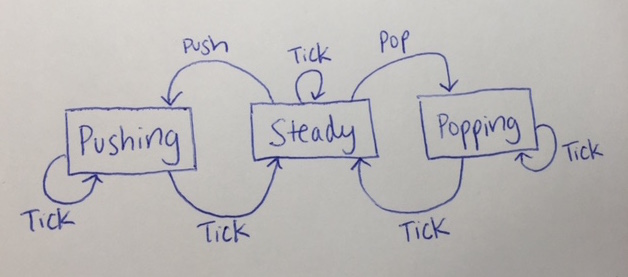 Push
Tick
Pop
Pushing
Steady
Popping
Tick
Tick
Tick
Tick